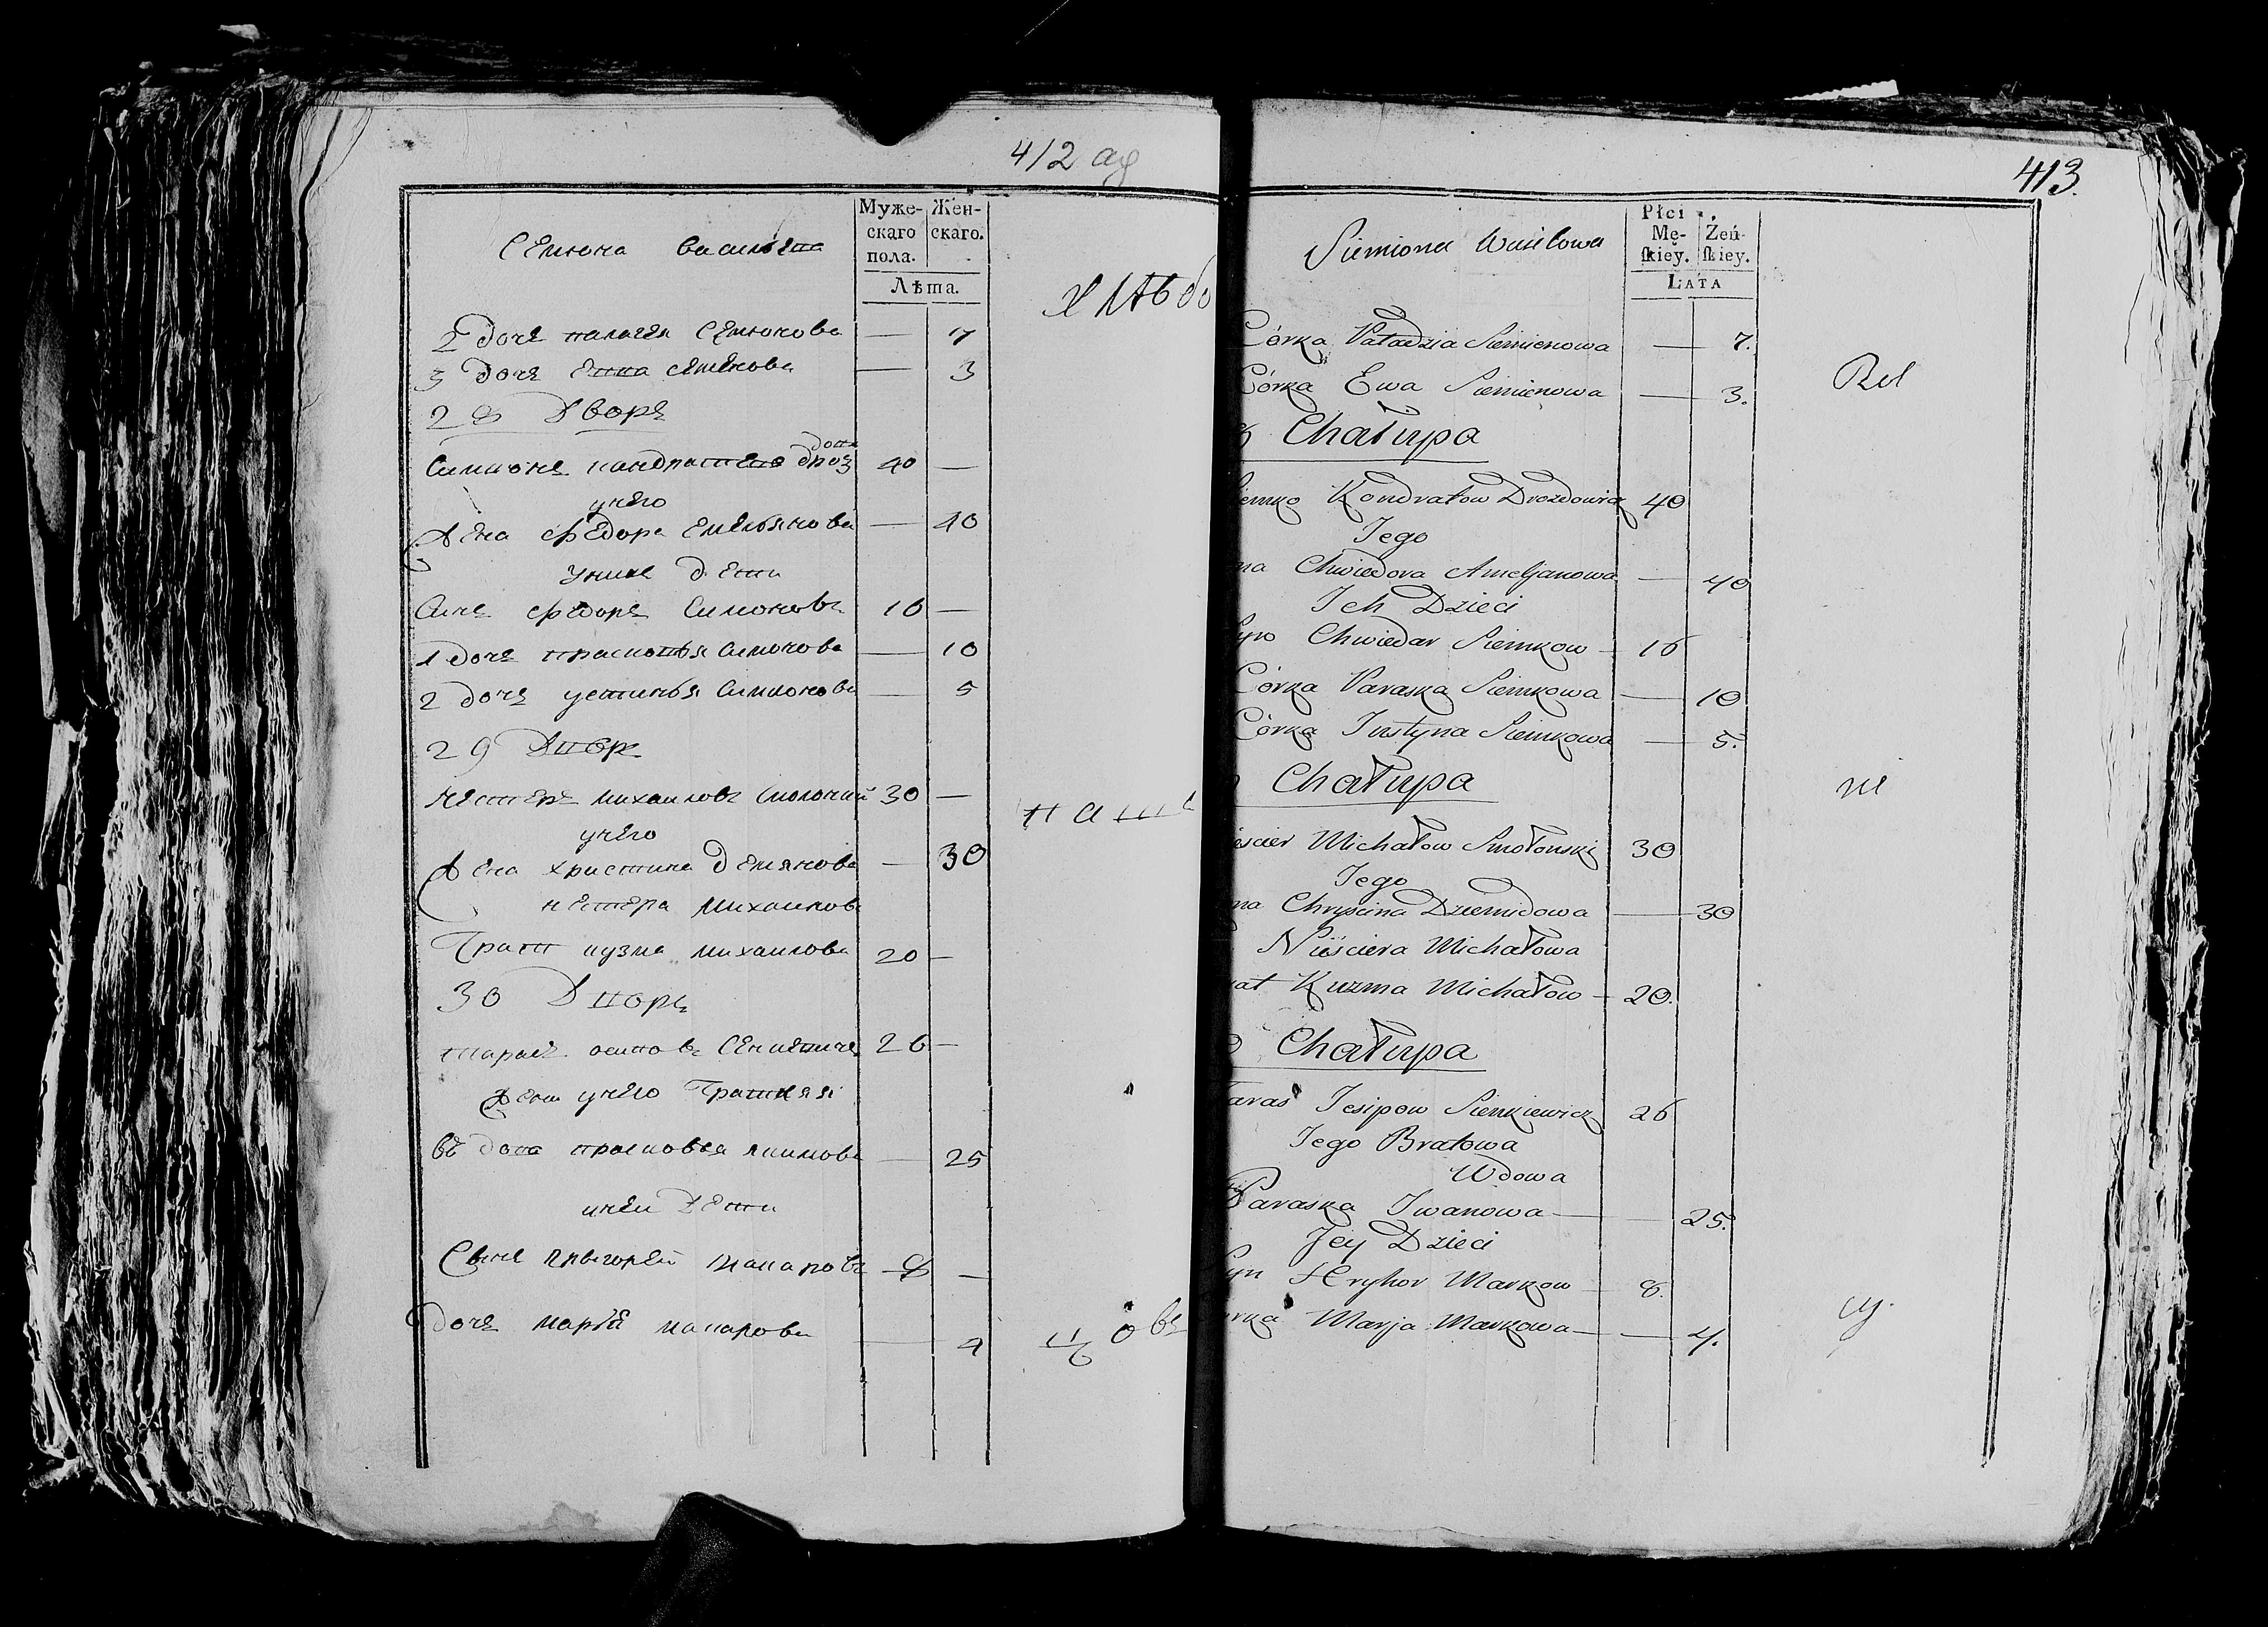 412 аб
Семюна Василева
Муже-
скаго
пола.
Жен-
скаго.
Лѣта.
2 дочъ палагея Семюнова — 7
3 дочъ Евва семенова — 3
28 Дворъ
Симионъ кандратевъ дроз 40 —
унего
Жена федора Емельянова — 40
Унихъ дети
Синъ федоръ Симоновъ 16 —
1 дочъ прасковья Симонова — 10
2 дочъ устинья Симионова — 5
29 Дворъ
нестеръ михаиловъ смолский 30 —
унего
Жена христина демянова — 30
нестера михаилова
Брат кузма михаиловъ 20 —
30 Дворъ
тарасъ осиповъ Сенкевичъ 26 —
унего Братняя
вдова прасковья — 25
унеи Дети
Сынъ григорей макаровъ 8 —
дочъ марья макарова — 4
413.
Siemiona Wasilowa
Płci
Mę-
skiey.
Żeń-
skiey.
LATA
Córka Paładzia Siemienowa — 7.
Córka Ewa Siemienowa — 3.
Rel
Chałupa
iemko Kondratow Drozdowicz 40
Jego
na Chwiedora Ameljanowa — 40
Ich Dzieci
Syn Chwiedar Siemkow — 16
Córka Paraska Siemkowa — 10
Córka Justyna Siemkowa — 5.
Chałupa
ni
eścier Michałow Smolonski 30
Jego
na Chryscina Dziemidowa — 30
Nieściera Michałowa
rat Kuzma Michałow — 20.
Chałupa
aras Jesipow Sienkiewicz 26
Jego Bratowa
Wdowa
Paraska Iwanowa — 25.
Jey Dzieci
Syn Hryhor Markow — 8.
órka Marja Markowa — 4.
cy.